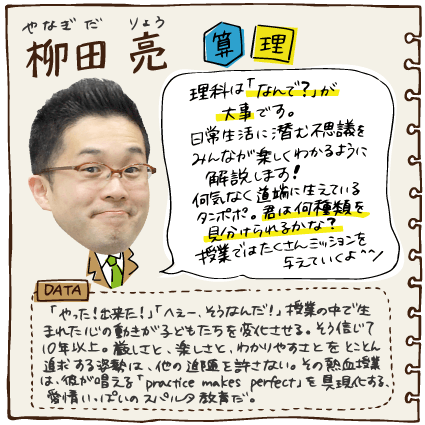 やなぎだ りょう
柳田 亮 算 理
理科は「なんで？」が
大事です。
日常生活に潜む不思議を
みんなが楽しくわかるように
解説します！
何気なく道端に生えている
タンポポ。君は何種類を
見分けられるかな？
授業ではたくさんミッションを
与えていくよ^^ノ
DATA
「やった！出来た！」「へぇー、そうなんだ！」授業の中で生
まれた心の動きが子どもたちを変化させる。そう信じて
10年以上。厳しさと、楽しさと、わかりやすさをとことん
追求する姿勢は、他の追随を許さない。その熱血授業
は、彼が唱える「practice makes perfect」を具現化する、
愛情いっぱいのスパルタ教育だ。